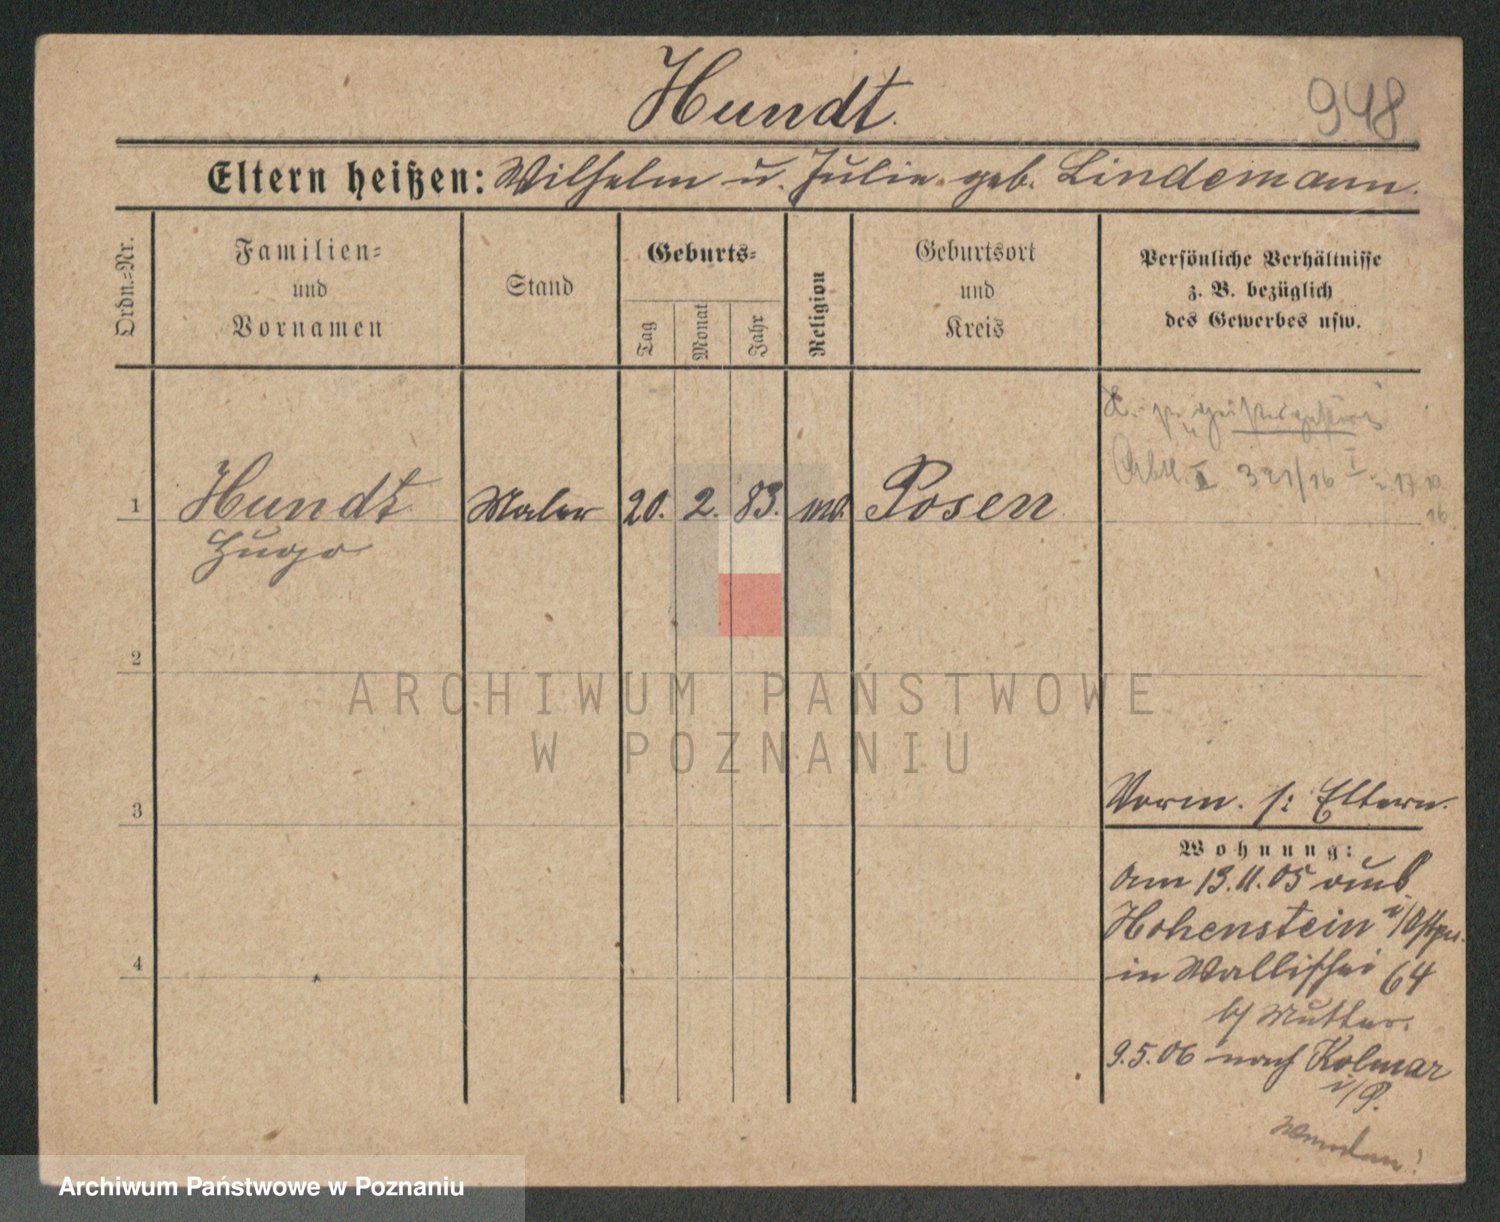 Hundt.
948
Eltern heißen: Wilhelm u. Julie geb. Lindemann.
Ordn.-Nr.
Familien-
und
Vornamen
Stand
Geburts-
Tag
Monat
Jahr
Religion
Geburtsort
und
Kreis
Persönliche Verhältnisse
z. B. bezüglich
des Gewerbes usw.
321/16
1 Hundt Maler 20. 2. 83. Posen
Hugo
2
ARCHIWUM PAŃSTWOWE
W POZNANIU
3
Vorm. s: Eltern.
Wohnung:
Am 13.11.05 aus
Hohenstein i/Ostpr.
4
in Wallischei 64
b/ Mutter.
9.5.06 nach Kolmar
i/P.
Wenden!
Archiwum Państwowe w Poznaniu